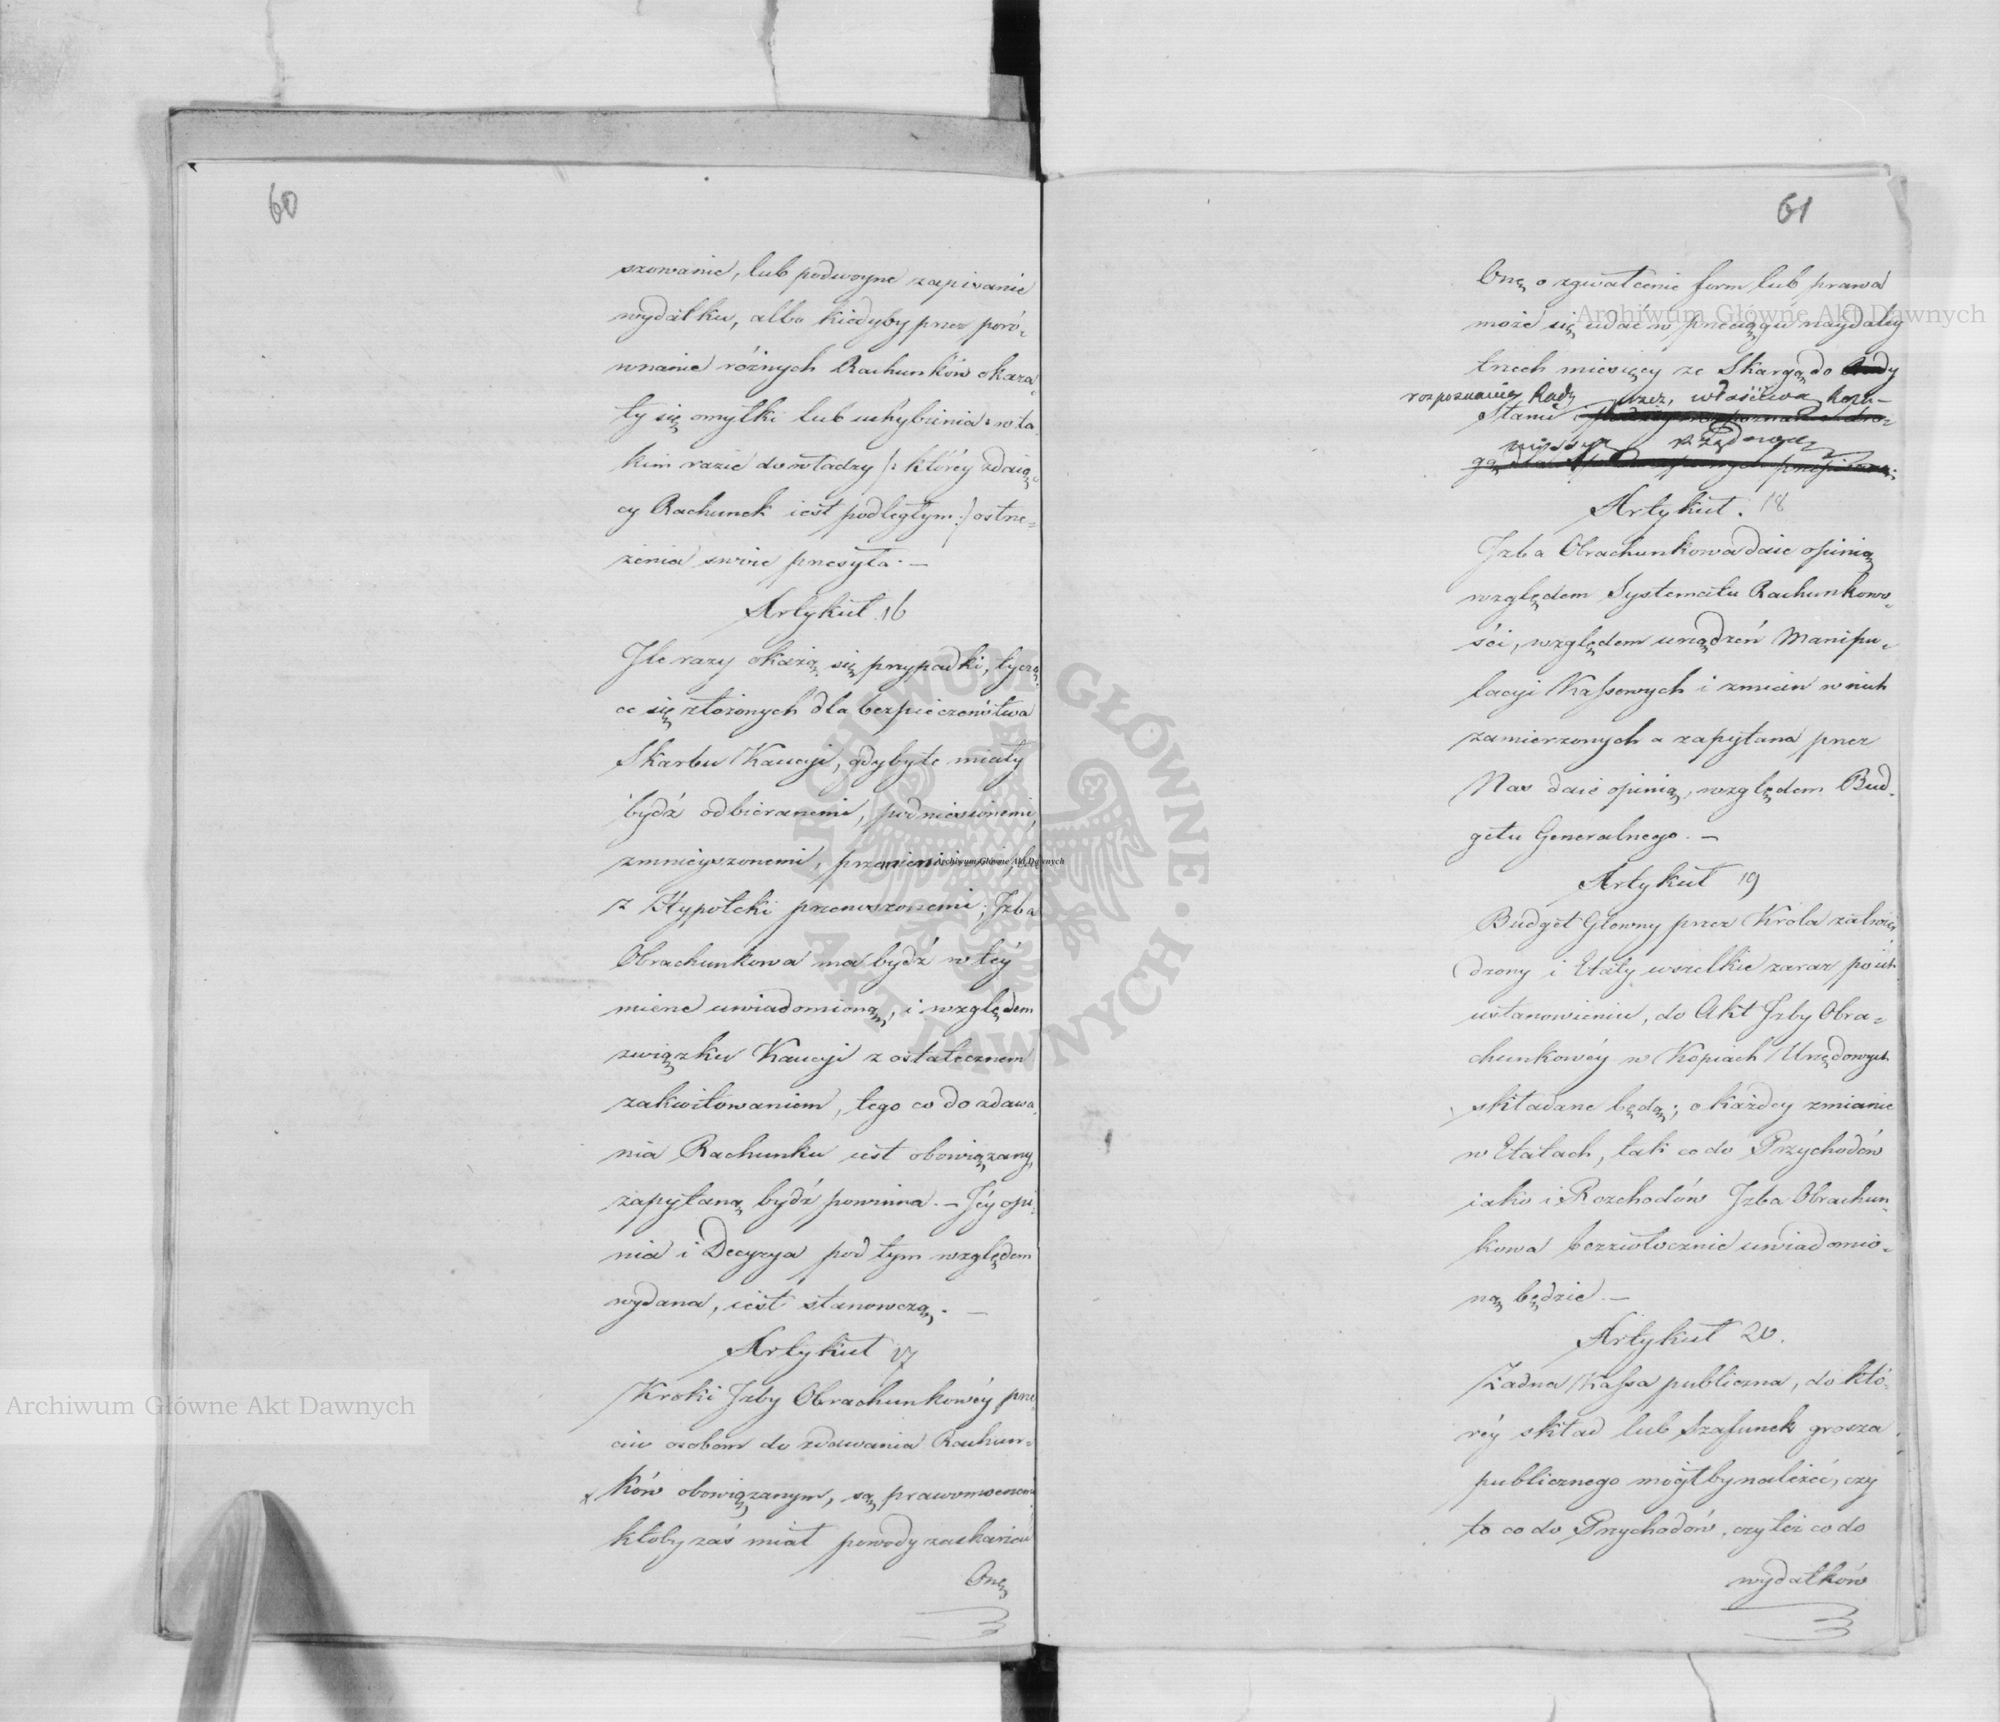 60
szowanie, lub podwoyne zapisanie
wydatku, albo kiedyby przez poró-
wnanie różnych Rachunków okaza
ły się omyłki lub uchybienia: w ta
kim razie do władzy /: któréy zdaią-
cy Rachunek iest podległym :/ ostrze-
żenia swoie przesyła. —
Artykuł 16
Ile razy okażą się przypadki, tyczą
ce się złożonych dla bezpieczeństwa
Skarbu Kaucyi, gdyby te miały
bydź odbieranemi, podniesionemi,
zmnieyszonemi,
z Hypoteki przenoszonemi; Izba
Obrachunkowa ma bydź w téy
mierze uwiadomioną, i względem
związku Kaucyi z ostatecznem
zakwitowaniem, tego co do zdawa
nia Rachunku iest obowiązany,
zapytaną bydź powinna. — Jéy opi-
nia i Decyzya pod tym względem
wydana, iest stanowczą. —
Artykuł 17
Kroki Izby Obrachunkowéy prze
ciw osobom do zdawania Rachun-
ków obowiązanym, są prawomocnemi
ktoby zaś miał powody zaskarżeń
Onę
61
Onę o zgwałcenie form lub prawa
może się udać w przeciągu naydaléy
trzech miesięcy ze Skargą do Rady
rozpoznanie Rady przez, właściwa Kom-
Stanu
missya rządowa
Artykuł. 18
Izba Obrachunkowa daie opinią
względem Systematu Rachunkowo-
ści, względem urządzeń Manipu-
lacyi Kassowych i zmian w nich
zamierzonych a zapytana przez
Nas daie opinią, względem Bud-
getu Generalnego. —
Artykuł 19
Budget Głowny przez Króla zatwier
dzony i Etaty wszelkie zaraz po ich
ustanowieniu, do Akt Izby Obra-
chunkowéy w Kopiach Urzędowych
składane będą; o każdey zmianie
w Etatach, tak co do Przychodów
iako i Rozchodów Izba Obrachun-
kowa bezzwłocznie uwiadomio-
ną będzie. —
Artykuł 20.
Żadna Kassa publiczna, do któ-
réy skład lub Szafunek grosza
publicznego mógłby należeć, czy
to co do Przychodów, czy też co do
wydatków
Archiwum Główne Akt Dawnych
Archiwum Główne Akt Dawnych
Archiwum Główne Akt Dawnych
ARCHIWUM GŁÓWNE • AKT DAWNYCH •